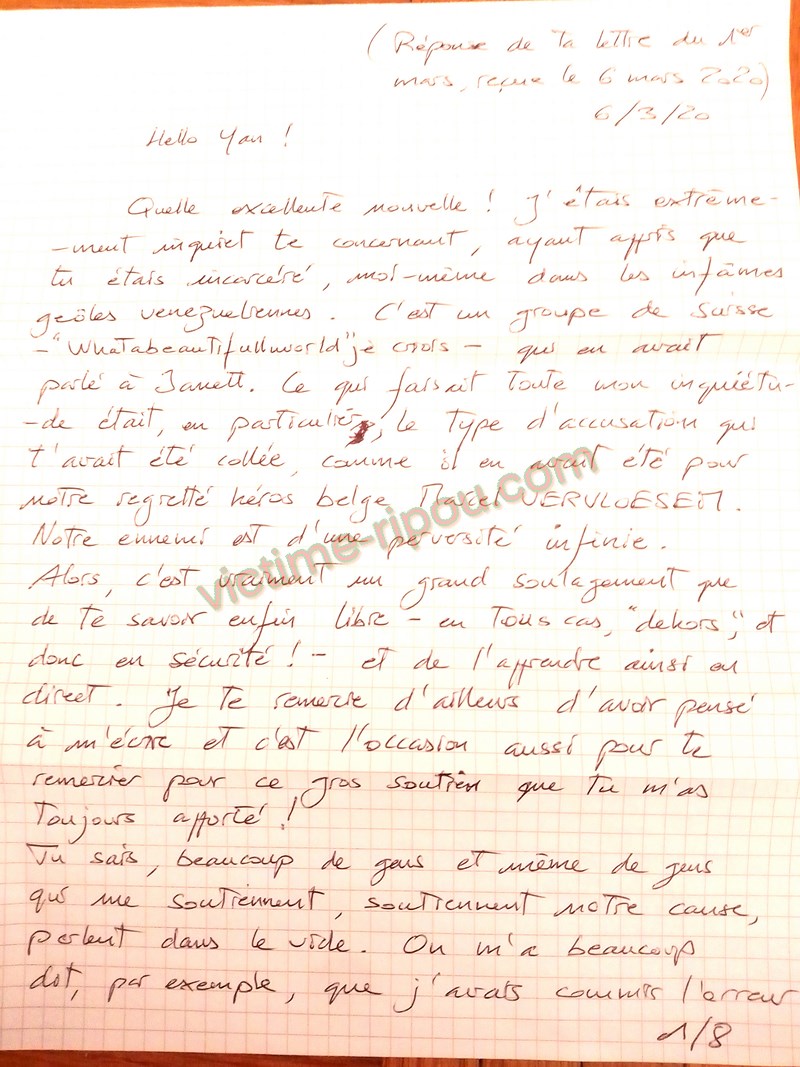 (Réponse de ta lettre du 1er
mars, reçue le 6 mars 2020)
6/3/20
Hello Yan !
Quelle excellente nouvelle ! J'étais extrême-
-ment inquiet te concernant, ayant appris que
tu étais incarcéré, moi-même dans les infâmes
geôles venezueliennes. C'est un groupe de Suisse
-"Whatabeautifullworld" je crois - qui en avait
parlé à Janett. Ce qui faisait toute mon inquiétu-
-de était, en particulier, le type d'accusation qui
t'avait été collée, comme il en avait été pour
notre regretté héros belge Marcel VERVLOESEM.
Notre ennemi est d'une perversité infinie.
Alors, c'est vraiment un grand soulagement que
de te savoir enfin libre - en tous cas, "dehors", et
donc en sécurité ! - et de l'apprendre ainsi en
direct. Je te remercie d'ailleurs d'avoir pensé
à m'écrire et c'est l'occasion aussi pour te
remercier pour ce gros soutien que tu m'as
toujours apporté !
Tu sais, beaucoup de gens et même de gens
qui me soutiennent, soutiennent notre cause,
parlent dans le vide. On m'a beaucoup
dit, par exemple, que j'avais commis l'erreur
1/8
victime-ripou.com